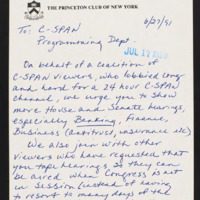 THE PRINCETON CLUB OF NEW YORK
6/27/91
To: C-SPAN
Programming Dept.
JUL 17
On behalf of a coalition of
C-SPAN viewers, who lobbied long
and hard for a 24 hour C-SPAN
channel, we urge you to show
more House and Senate hearings,
especially Banking, Finance,
Business (antitrust, insurance etc)
We also join with other
viewers who have requested that
you tape hearings so they can
be aired when Congress is not
in session (instead of having
to resort to many days of the